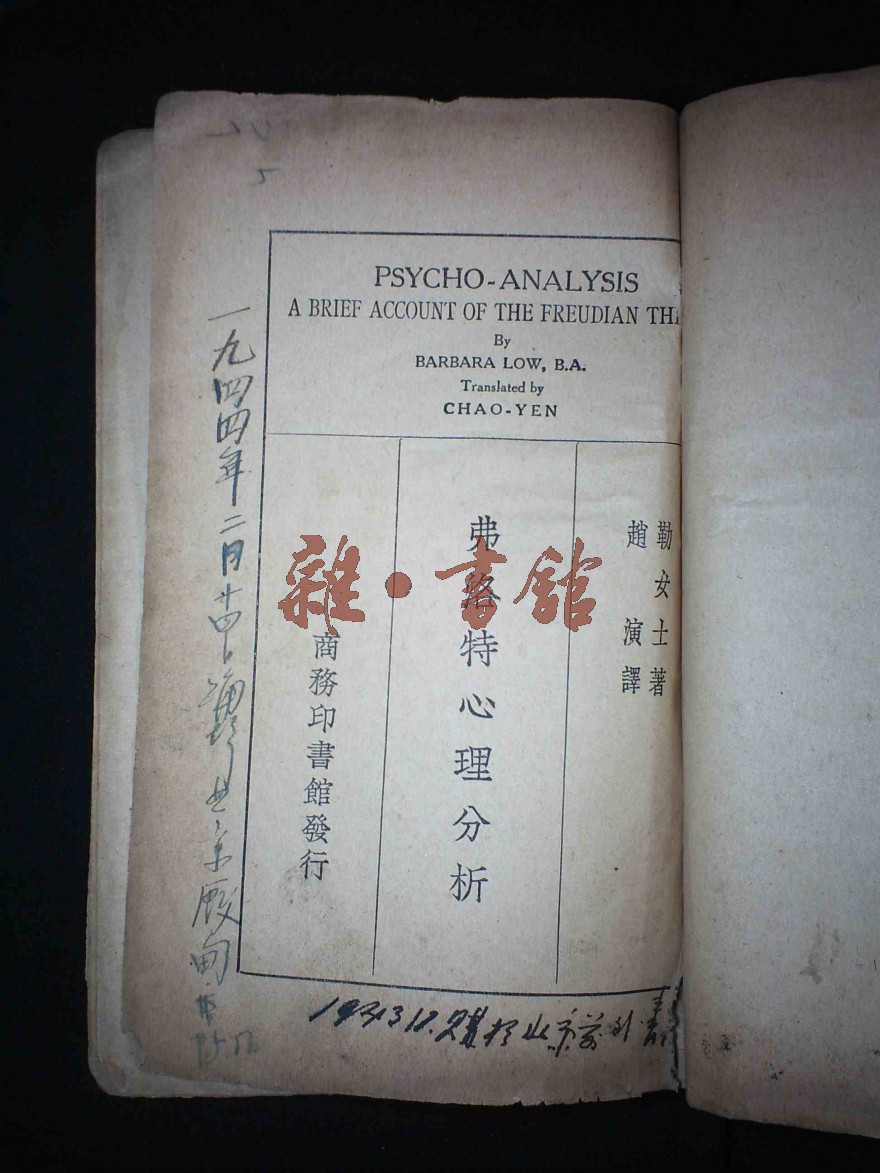 PSYCHO-ANALYSIS
A BRIEF ACCOUNT OF THE FREUDIAN THE
By
BARBARA LOW, B.A.
Translated by
CHAO-YEN
勒女士著
趙演譯
弗洛特心理分析
商務印書館發行
雜·書館
一九四四年二月廿四日購於北京廠甸
購於北京